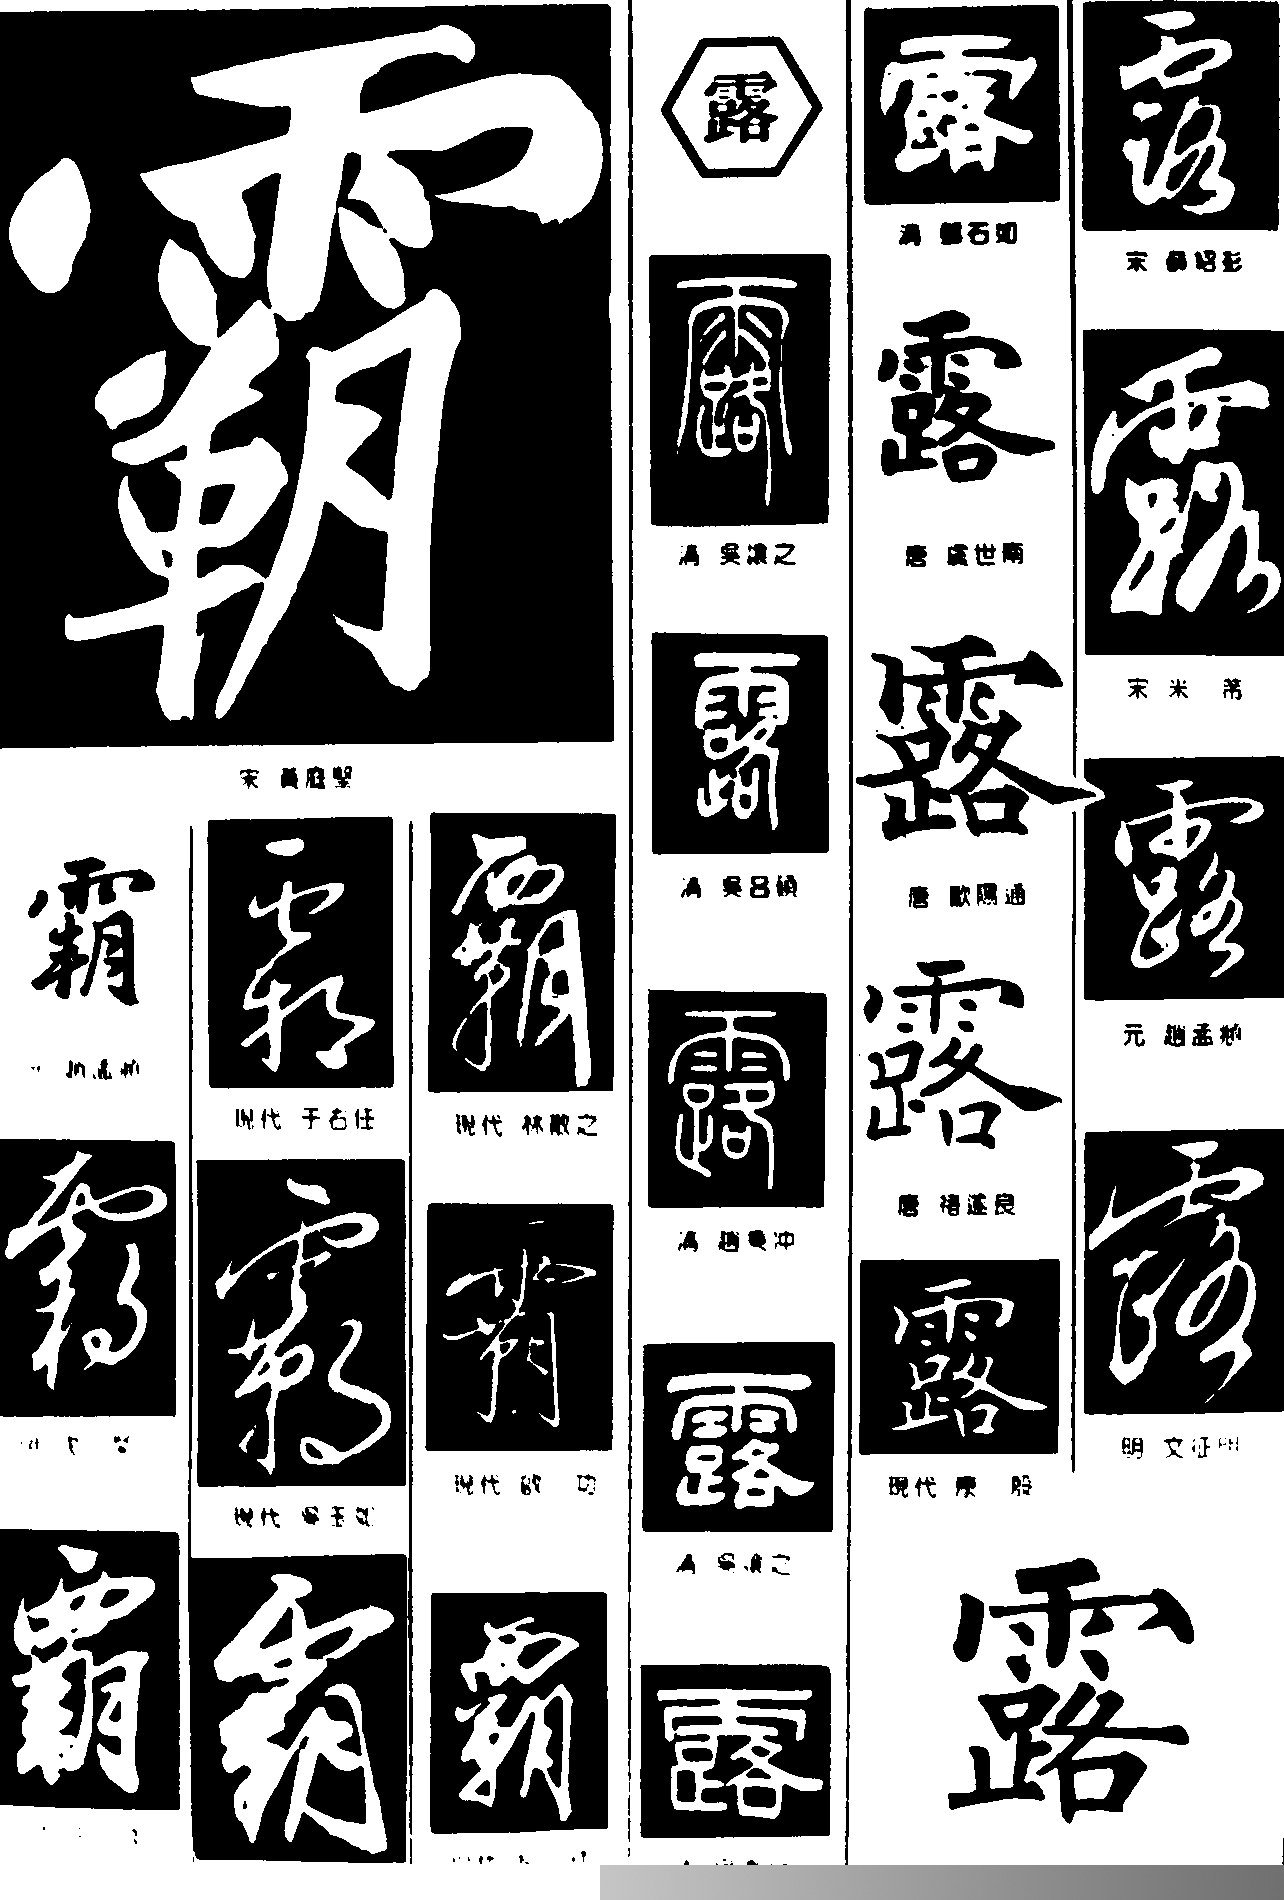 霸
宋 黃庭堅
霸
霸
現代 于右任
霸
現代 林散之
霸
霸
現代 吳玉如
霸
現代 啟 功
霸
霸
霸
露
露
清 吳讓之
露
露
清 趙
露
清 吳讓之
露
露
清 鄧石如
露
唐 虞世南
露
唐 歐陽通
露
唐 褚遂良
露
現代 康 殷
露
露
宋 紹彭
露
宋 米 芾
露
元 趙孟頫
露
明 文征明